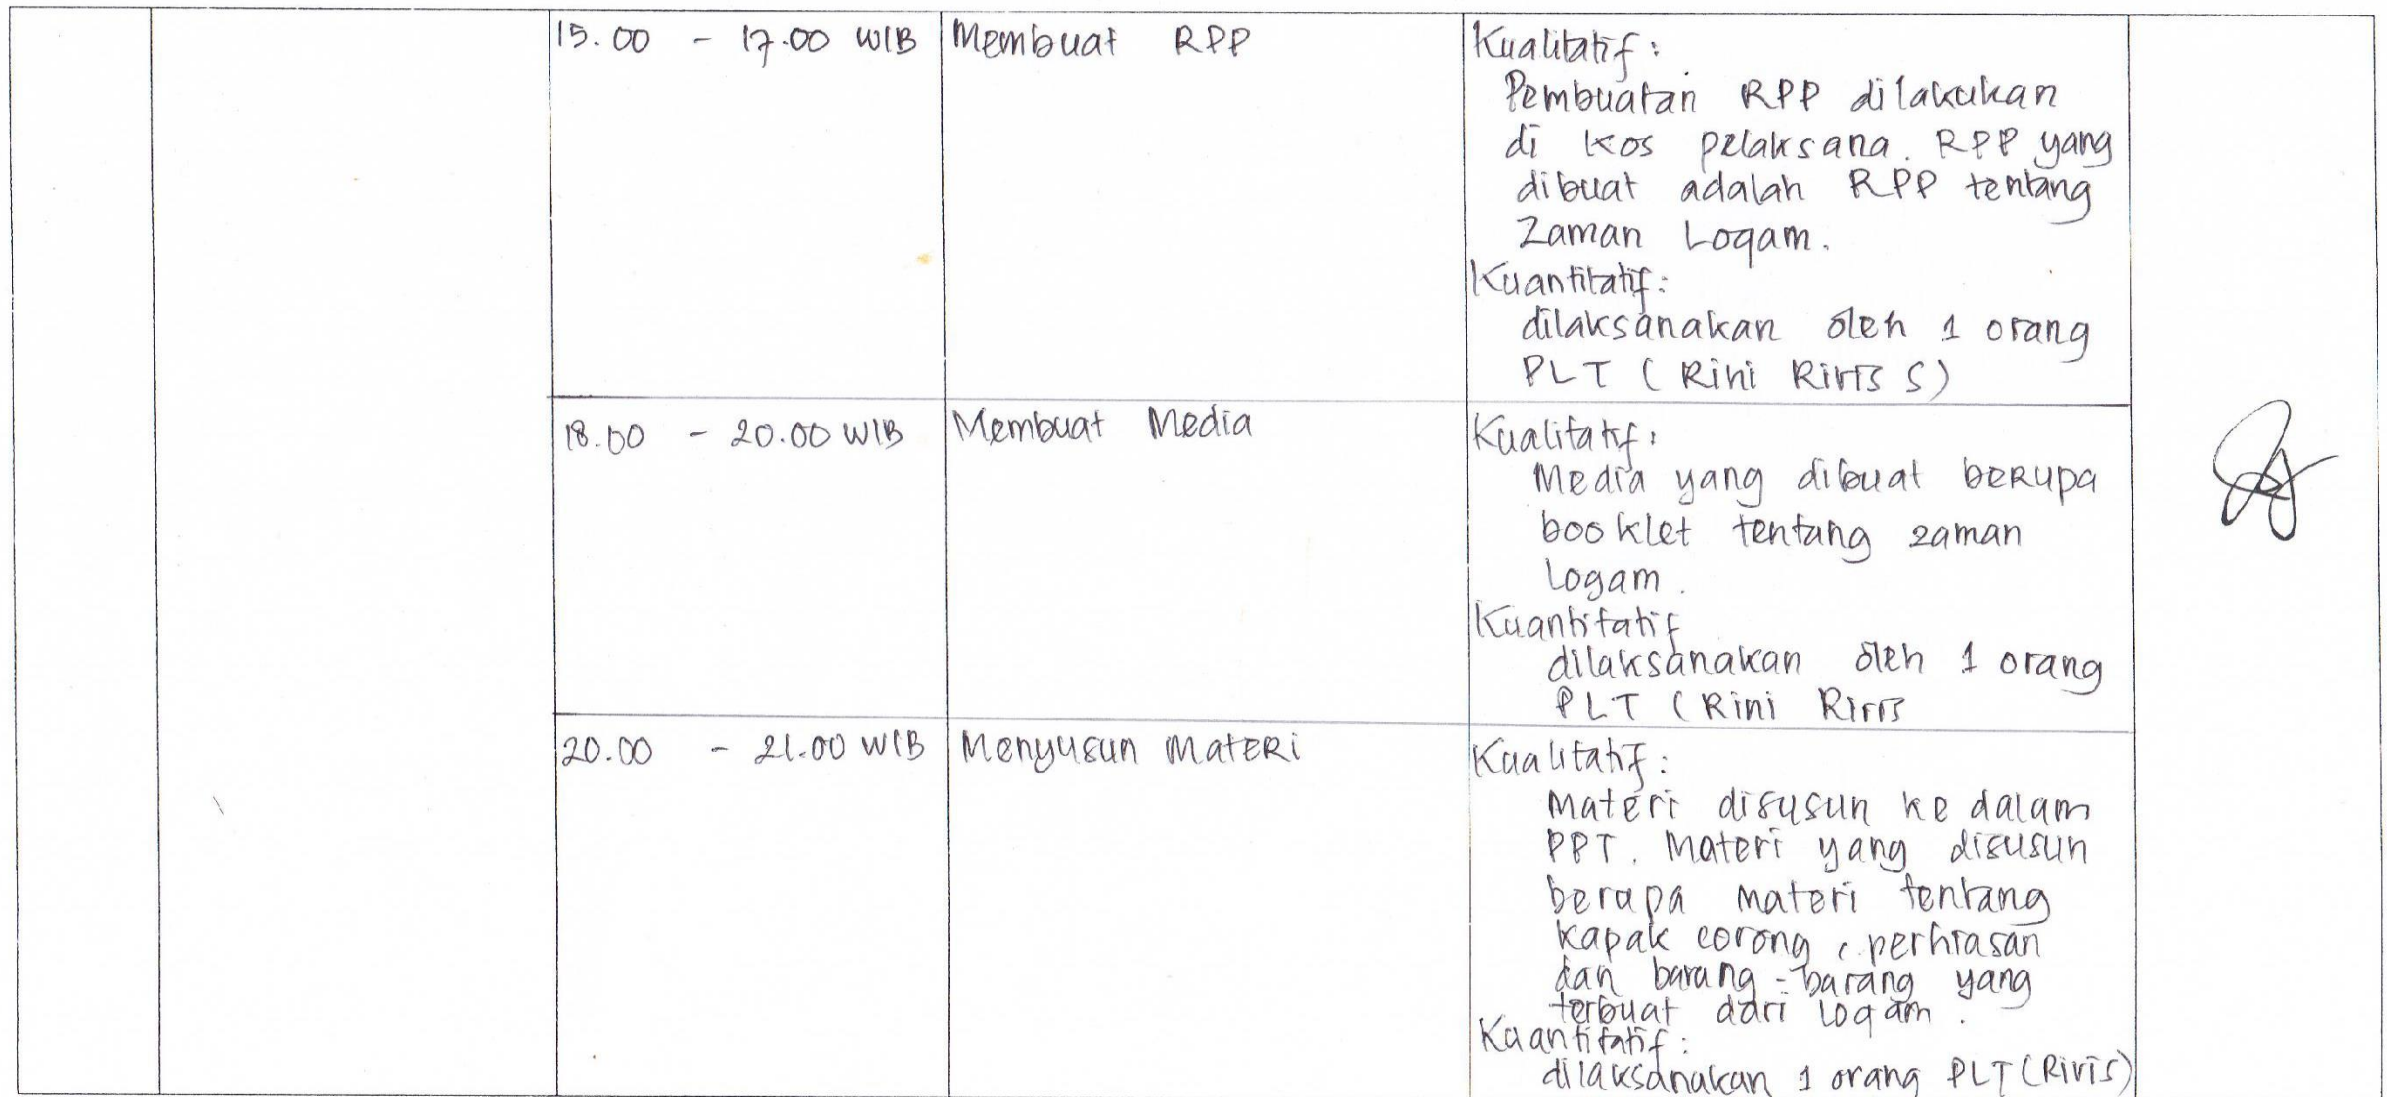 15.00 - 17.00 WIB
Membuat RPP
Kualitatif:
Pembuatan RPP dilakukan
di kos pelaksana. RPP yang
dibuat adalah RPP tentang
Zaman Logam.
Kuantitatif:
dilaksanakan oleh 1 orang
PLT (Rini Riris S)
18.00 - 20.00 WIB
Membuat Media
Kualitatif:
Media yang dibuat berupa
booklet tentang zaman
Logam.
Kuantitatif
dilaksanakan oleh 1 orang
PLT (Rini Riris
20.00 - 21.00 WIB
Menyusun Materi
Kualitatif:
Materi disusun ke dalam
PPT. Materi yang disusun
berapa materi tentang
kapak corong, perhiasan
dan barang-barang yang
terbuat dari logam.
Kuantitatif:
dilaksanakan 1 orang PLT (Riris)